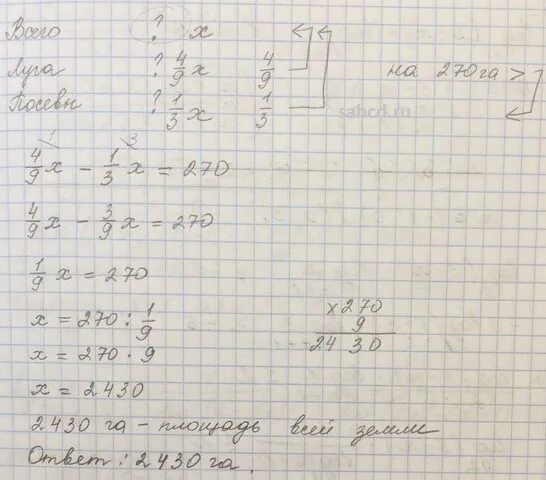 Всего ? x
Луга ? 4/9 x 4/9 на 270 га >
Посевы ? 1/3 x 1/3
sabcd.ru
4/9 x - 1/3 x = 270
4/9 x - 3/9 x = 270
1/9 x = 270
x = 270 : 1/9
x = 270 · 9
x = 2430
× 270
9
2430
2430 га - площадь всей земли
Ответ: 2430 га.